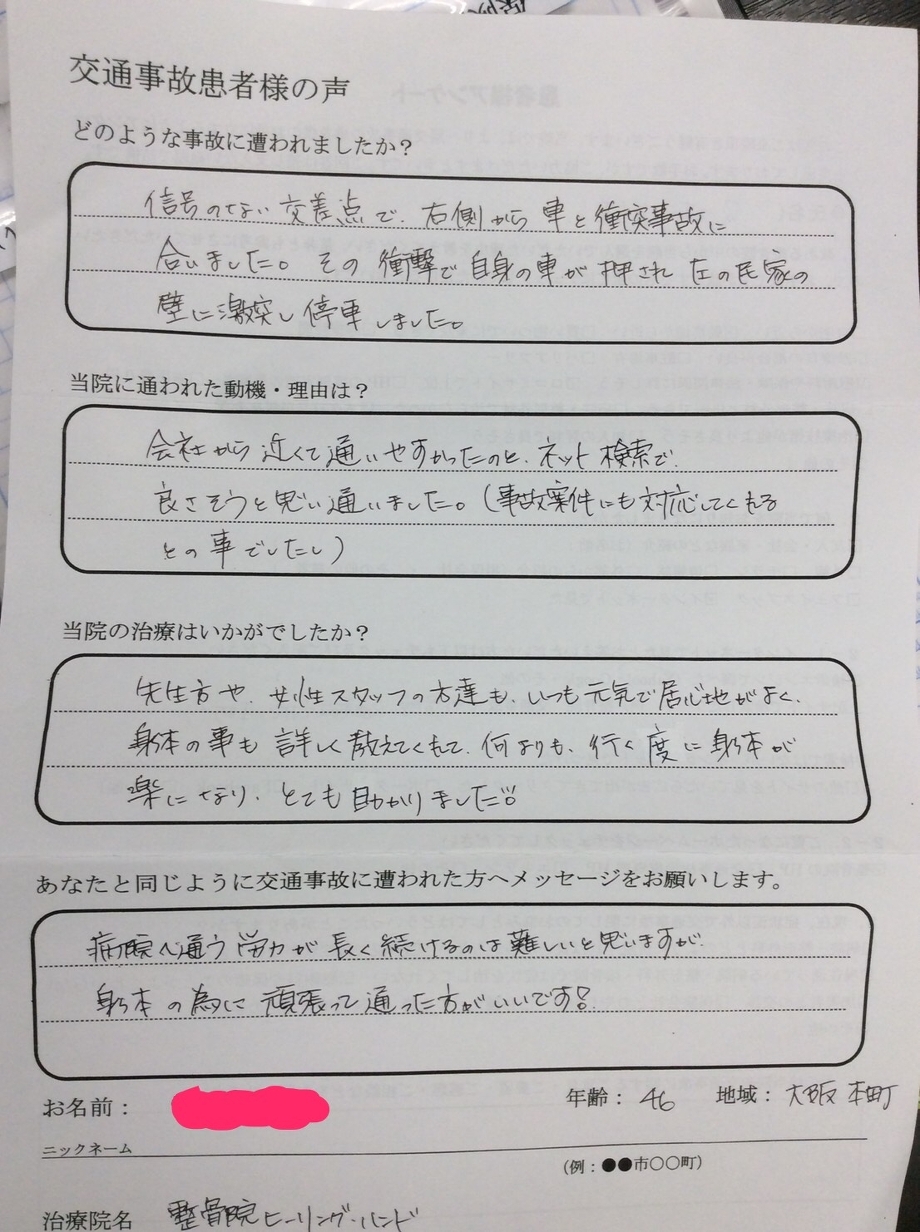 交通事故患者様の声
どのような事故に遭われましたか？
信号のない交差点で、右側から車と衝突事故に
合いました。その衝撃で自身の車が押され左の民家の
壁に激突し停車しました。
当院に通われた動機・理由は？
会社から近くて通いやすかったのと、ネット検索で、
良さそうと思い通いました。（事故案件にも対応してくれる
との事でしたし）
当院の治療はいかがでしたか？
先生方や、女性スタッフの方達も、いつも元気で居心地がよく、
身体の事も詳しく教えてくれて、何よりも、行く度に身体が
楽になり、とても助かりました!!
あなたと同じように交通事故に遭われた方へメッセージをお願いします。
病院へ通う労力が長く続けるのは難しいと思いますが、
身体の為に頑張って通った方がいいです!
お名前：
年齢：46 地域：大阪 本町
ニックネーム
（例：●●市〇〇町）
治療院名 整骨院ヒーリング・ハンド